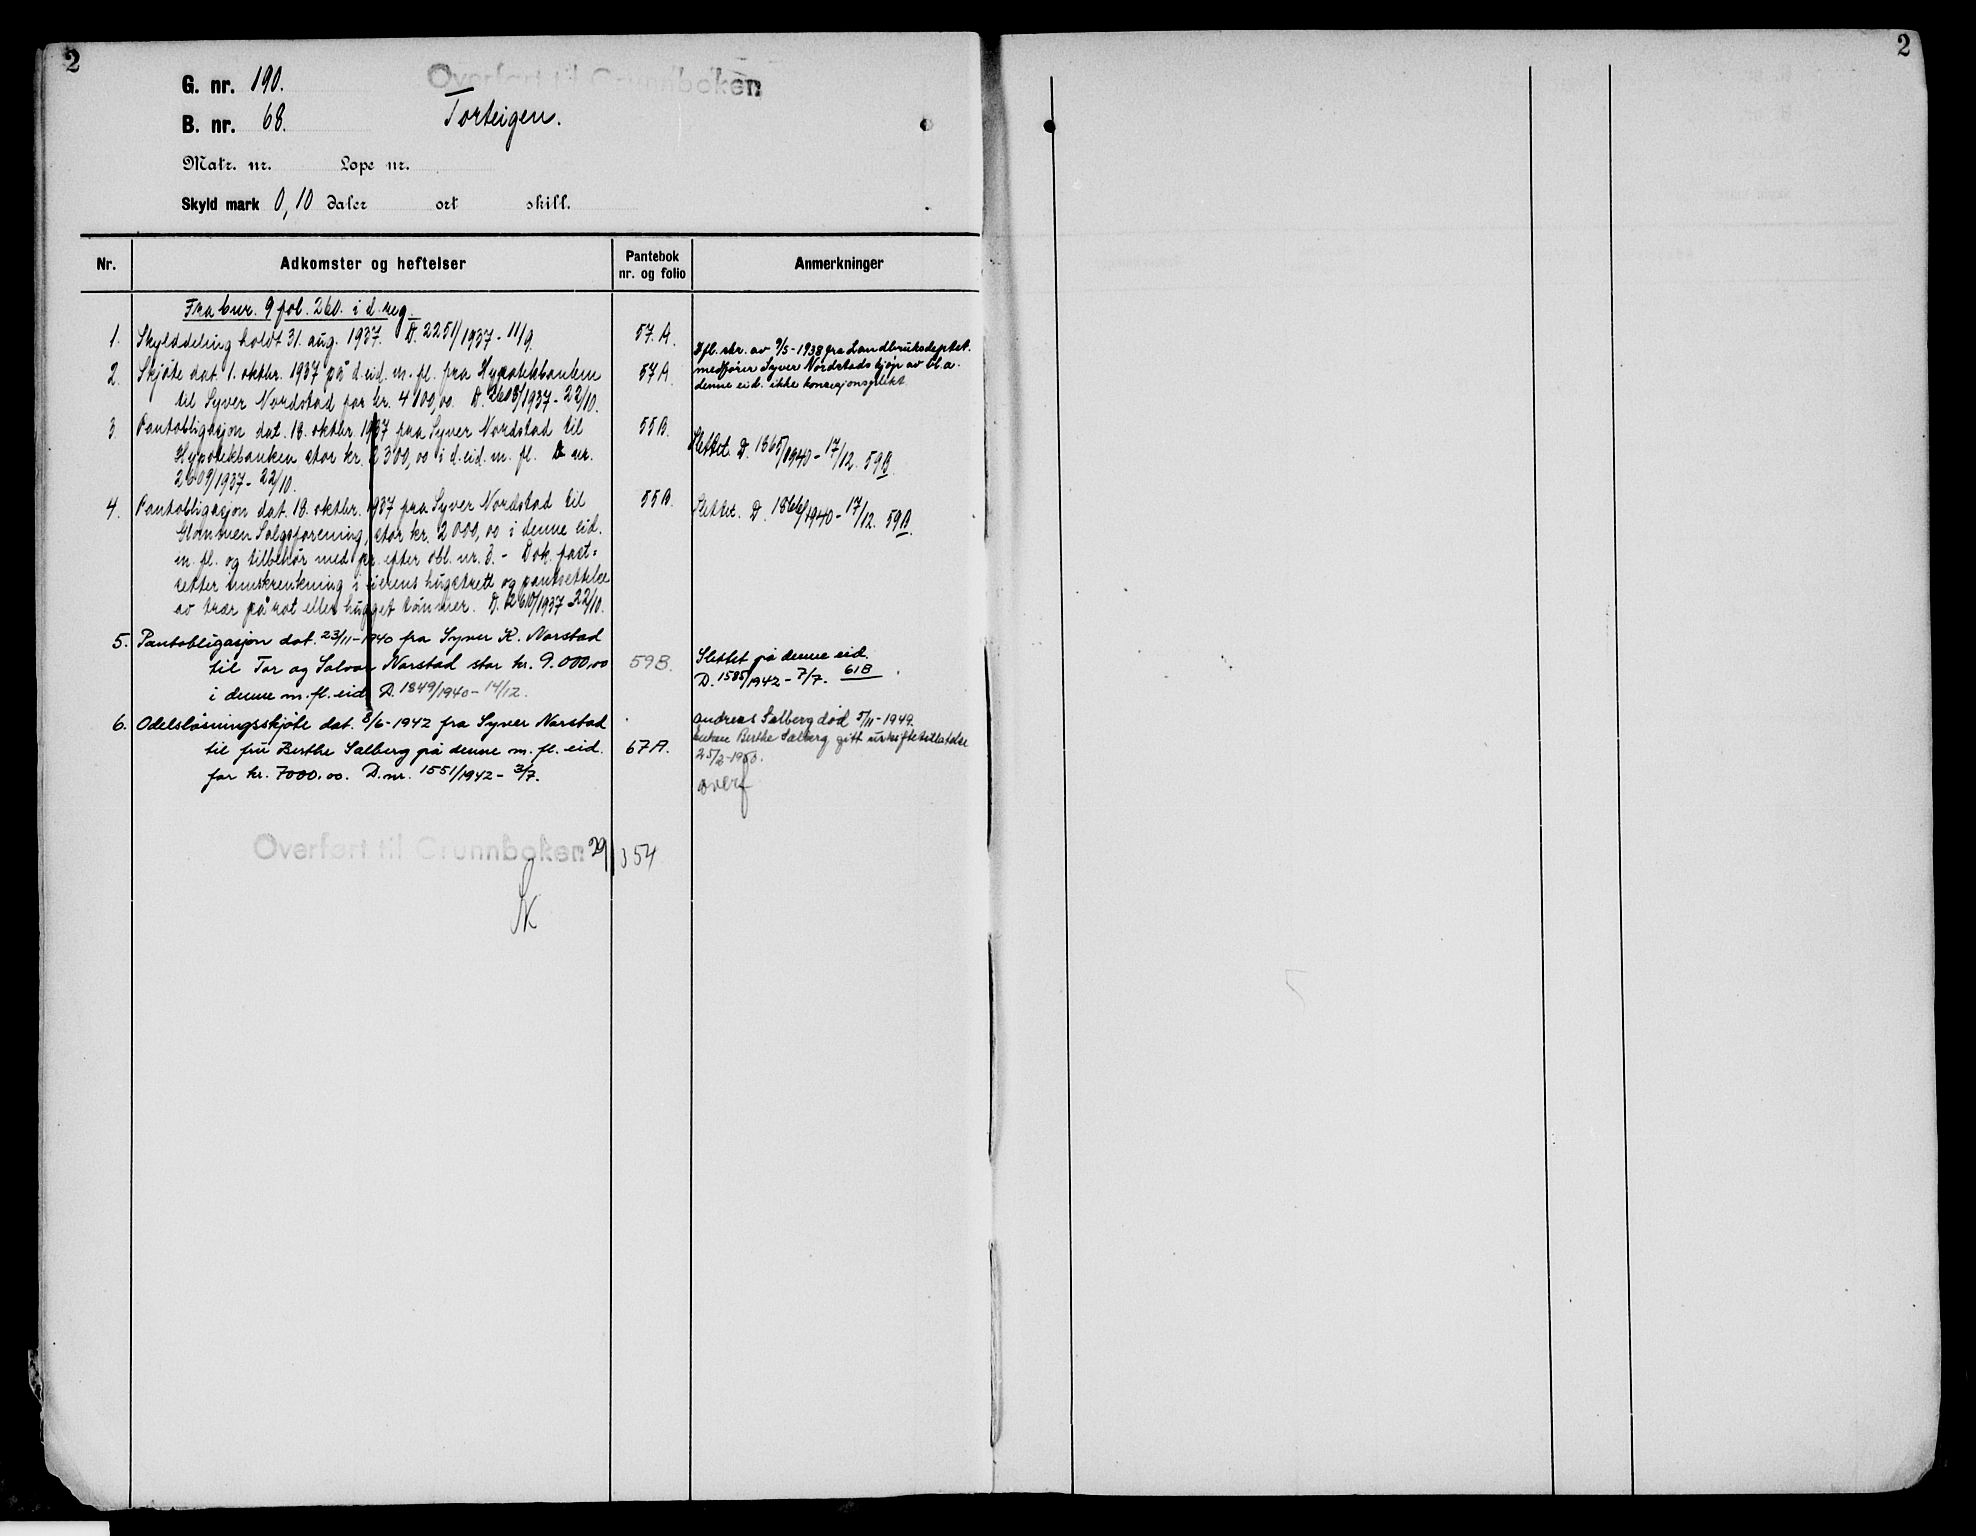 2
G. nr. 190.
Overført til Grunnboken
B. nr. 68. Torteigen.
Matr. nr. Løpe nr.
Skyld mark 0,10 daler ort skill.
Nr. Adkomster og heftelser Pantebok nr. og folio Anmerkninger
Fra bur. 9 fol. 260. i d. reg.
1. Skylddeling holdt 31. aug. 1937. D. 2251/1937 - 11/9. 57.A.
2. Skjøte dat. 1. oktbr. 1937 på d. eid. m. fl. fra Hypotekbanken 57A.
til Syver Nordstad for kr. 4100,00. D. 2608/1937 - 22/10.
Ifl. skr. av 9/5-1938 fra Landbruksdeptet.
medfører Syver Nordstads kjøp av bl.a.
denne eid. ikke konsesjonsplikt.
3. Pantobligasjon dat. 18. oktbr. 1937 fra Syver Nordstad til 55B.
Hypotekbanken, stor kr. 2300,00 i d. eid. m. fl. D nr.
2609/1937 - 22/10.
Slettet. D. 1865/1940 - 17/12. 59B.
4. Pantobligasjon dat. 18. oktbr. 1937 fra Syver Nordstad til 55B.
Glommen Salgsforening, stor kr. 2000,00 i denne eid.
m. fl. og tilbehør med pr. efter obl. nr. 3. - Dok. fast=
setter innskrenkning i eierens hugstrett og pantsettelse
av trær på rot eller hugget tømmer. D. 2610/1937 - 22/10.
Slettet. D. 1866/1940 - 17/12. 59B.
5. Pantobligasjon dat. 23/11-1940 fra Syver K. Norstad
til Tor og Solvor Norstad stor kr. 9.000,00 59B.
i denne m. fl. eid. D. 1849/1940 - 14/12.
Slettet på denne eid.
D. 1585/1942 - 7/7. 61B
6. Odelsløsningsskjøte dat. 8/6-1942 fra Syver Norstad
til fru Berthe Salberg på denne m. fl. eid. 67A.
for kr. 7000,00. D.nr. 1551/1942 - 3/7.
Andreas Salberg død 5/11-1949.
Enken Berthe Salberg gitt uskiftetillatelse
25/2-1950.
overf
Overført til Grunnboken 29/3 54
2